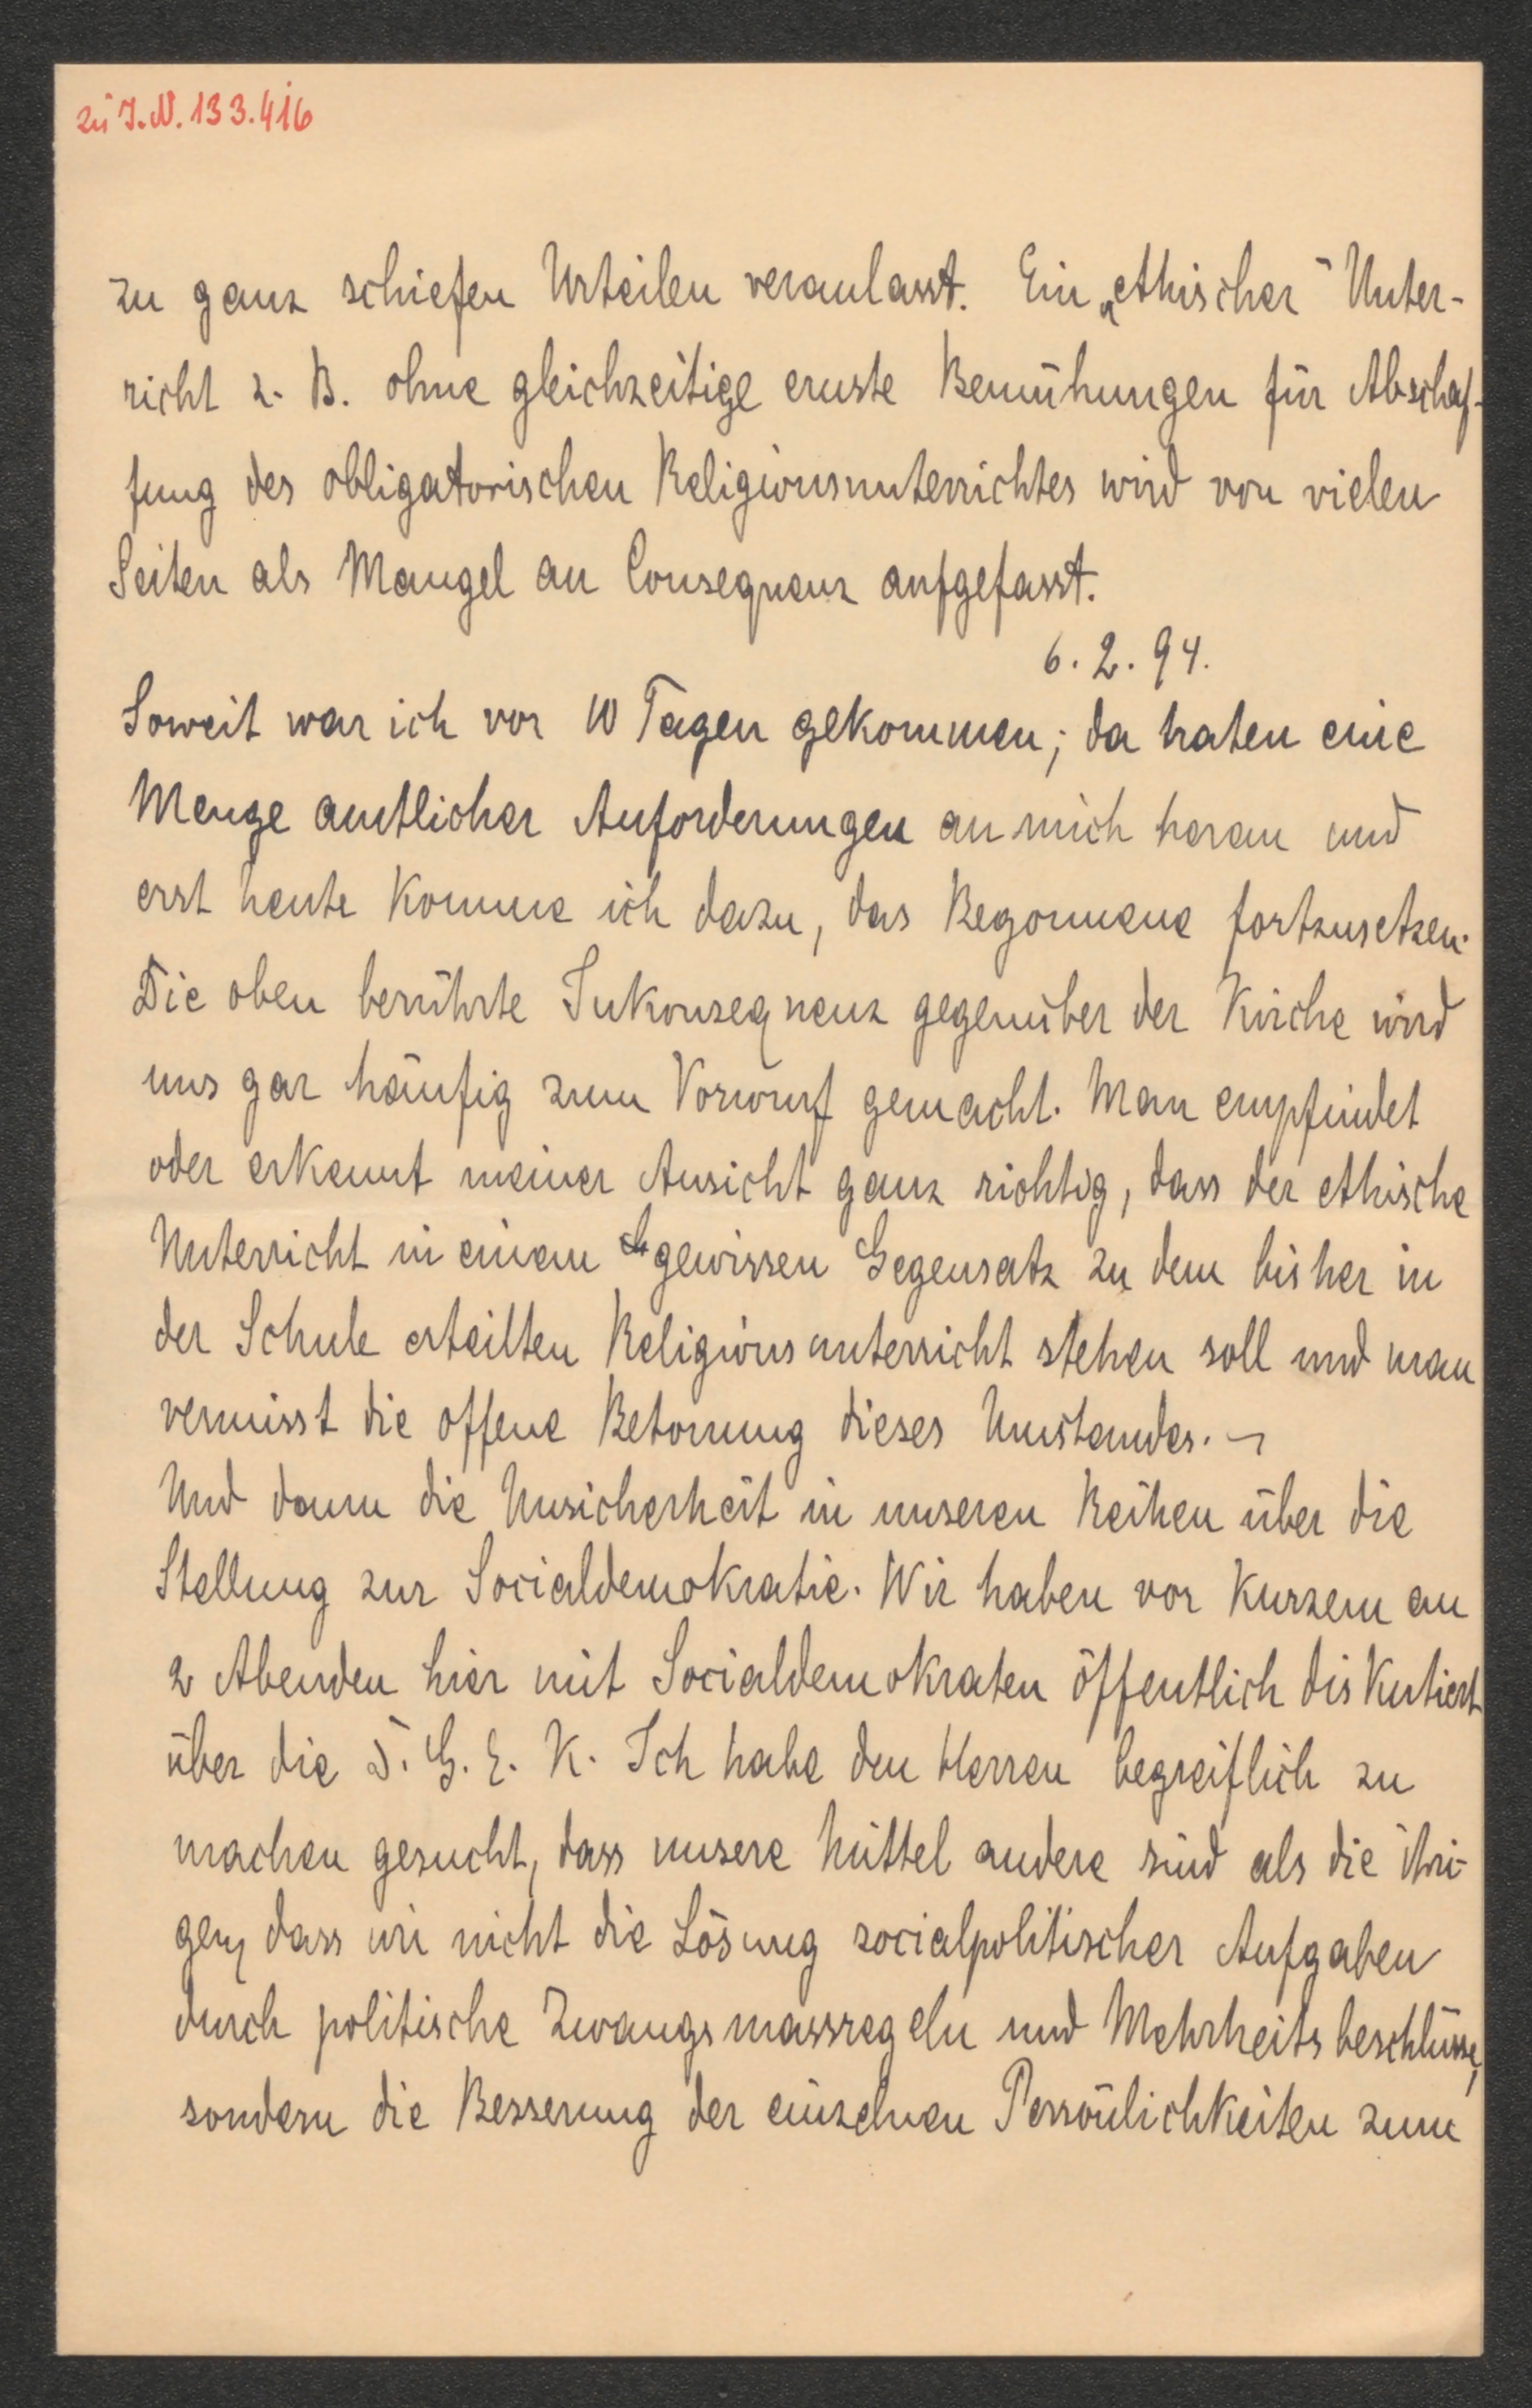 zu J.N. 133.416
zu ganz schiefen Urteilen veranlasst. Ein „ethischer“ Unter-
richt z. B. ohne gleichzeitige ernste Bemühungen für Abschaf-
fung des obligatorischen Religionsunterrichtes wird von vielen
Seiten als Mangel an Consequenz aufgefasst.
6. 2. 94.
Soweit war ich vor 10 Tagen gekommen; da traten eine
Menge amtlicher Anforderungen an mich heran und
erst heute komme ich dazu, das Begonnene fortzusetzen.
Die oben berührte Inkonsequenz gegenüber der Kirche wird
uns gar häufig zum Vorwurf gemacht. Man empfindet
oder erkennt meiner Ansicht ganz richtig, dass der ethische
Unterricht in einem gewissen Gegensatz zu dem bisher in
der Schule erteilten Religionsunterricht stehen soll und man
vermisst die offene Betonung dieses Umstandes. –
Und dann die Unsicherheit in unseren Reihen über die
Stellung zur Socialdemokratie. Wir haben vor Kurzem an
2 Abenden hier mit Socialdemokraten öffentlich diskutiert
über die D. G. E. K. Ich habe den Herren begreiflich zu
machen gesucht, dass unsere Mittel andere sind als die ihri-
gen, dass wir nicht die Lösung socialpolitischer Aufgaben
durch politische Zwangsmassregeln und Mehrheitsbeschlüsse,
sondern die Besserung der einzelnen Persönlichkeiten zum